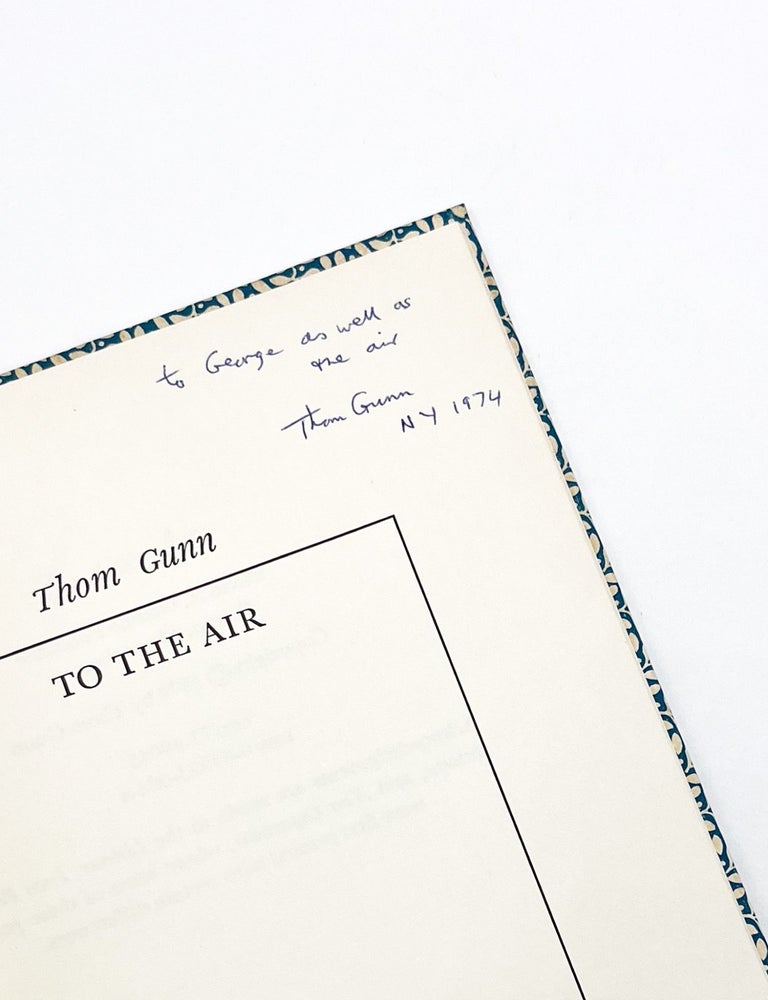 to George as well as
the air
Thom Gunn
NY 1974
Thom Gunn
TO THE AIR